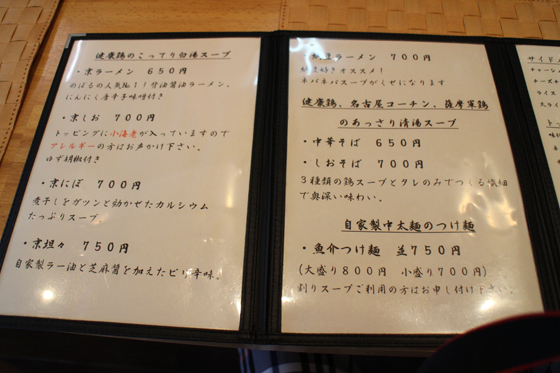 健康鶏のこってり白湯スープ
・京ラーメン 650円
のぼるの人気No1!背油醤油ラーメン。
にんにく唐辛子味噌付き
・京しお 700円
トッピングに小海老が入っていますので
アレルギーの方はお声かけ下さい。
ゆず胡椒付き
・京にぼ 700円
煮干しをガツンと効かせたカルシウム
たっぷりスープ
・京坦々 750円
自家製ラー油と芝麻醤を加えたピリ辛味。
ラーメン 700円
好きオススメ!
ネバネバスープがくせになります
健康鶏、名古屋コーチン、薩摩軍鶏
のあっさり清湯スープ
・中華そば 650円
・しおそば 700円
3種類の鶏スープとタレのみでつくる繊細
で奥深い味わい。
自家製中太麺のつけ麺
・魚介つけ麺 並750円
(大盛り800円 小盛り700円)
割りスープご利用の方はお申し付け下さい。
サイドメ
チャーシュ
チーズ
ライス
大ライ